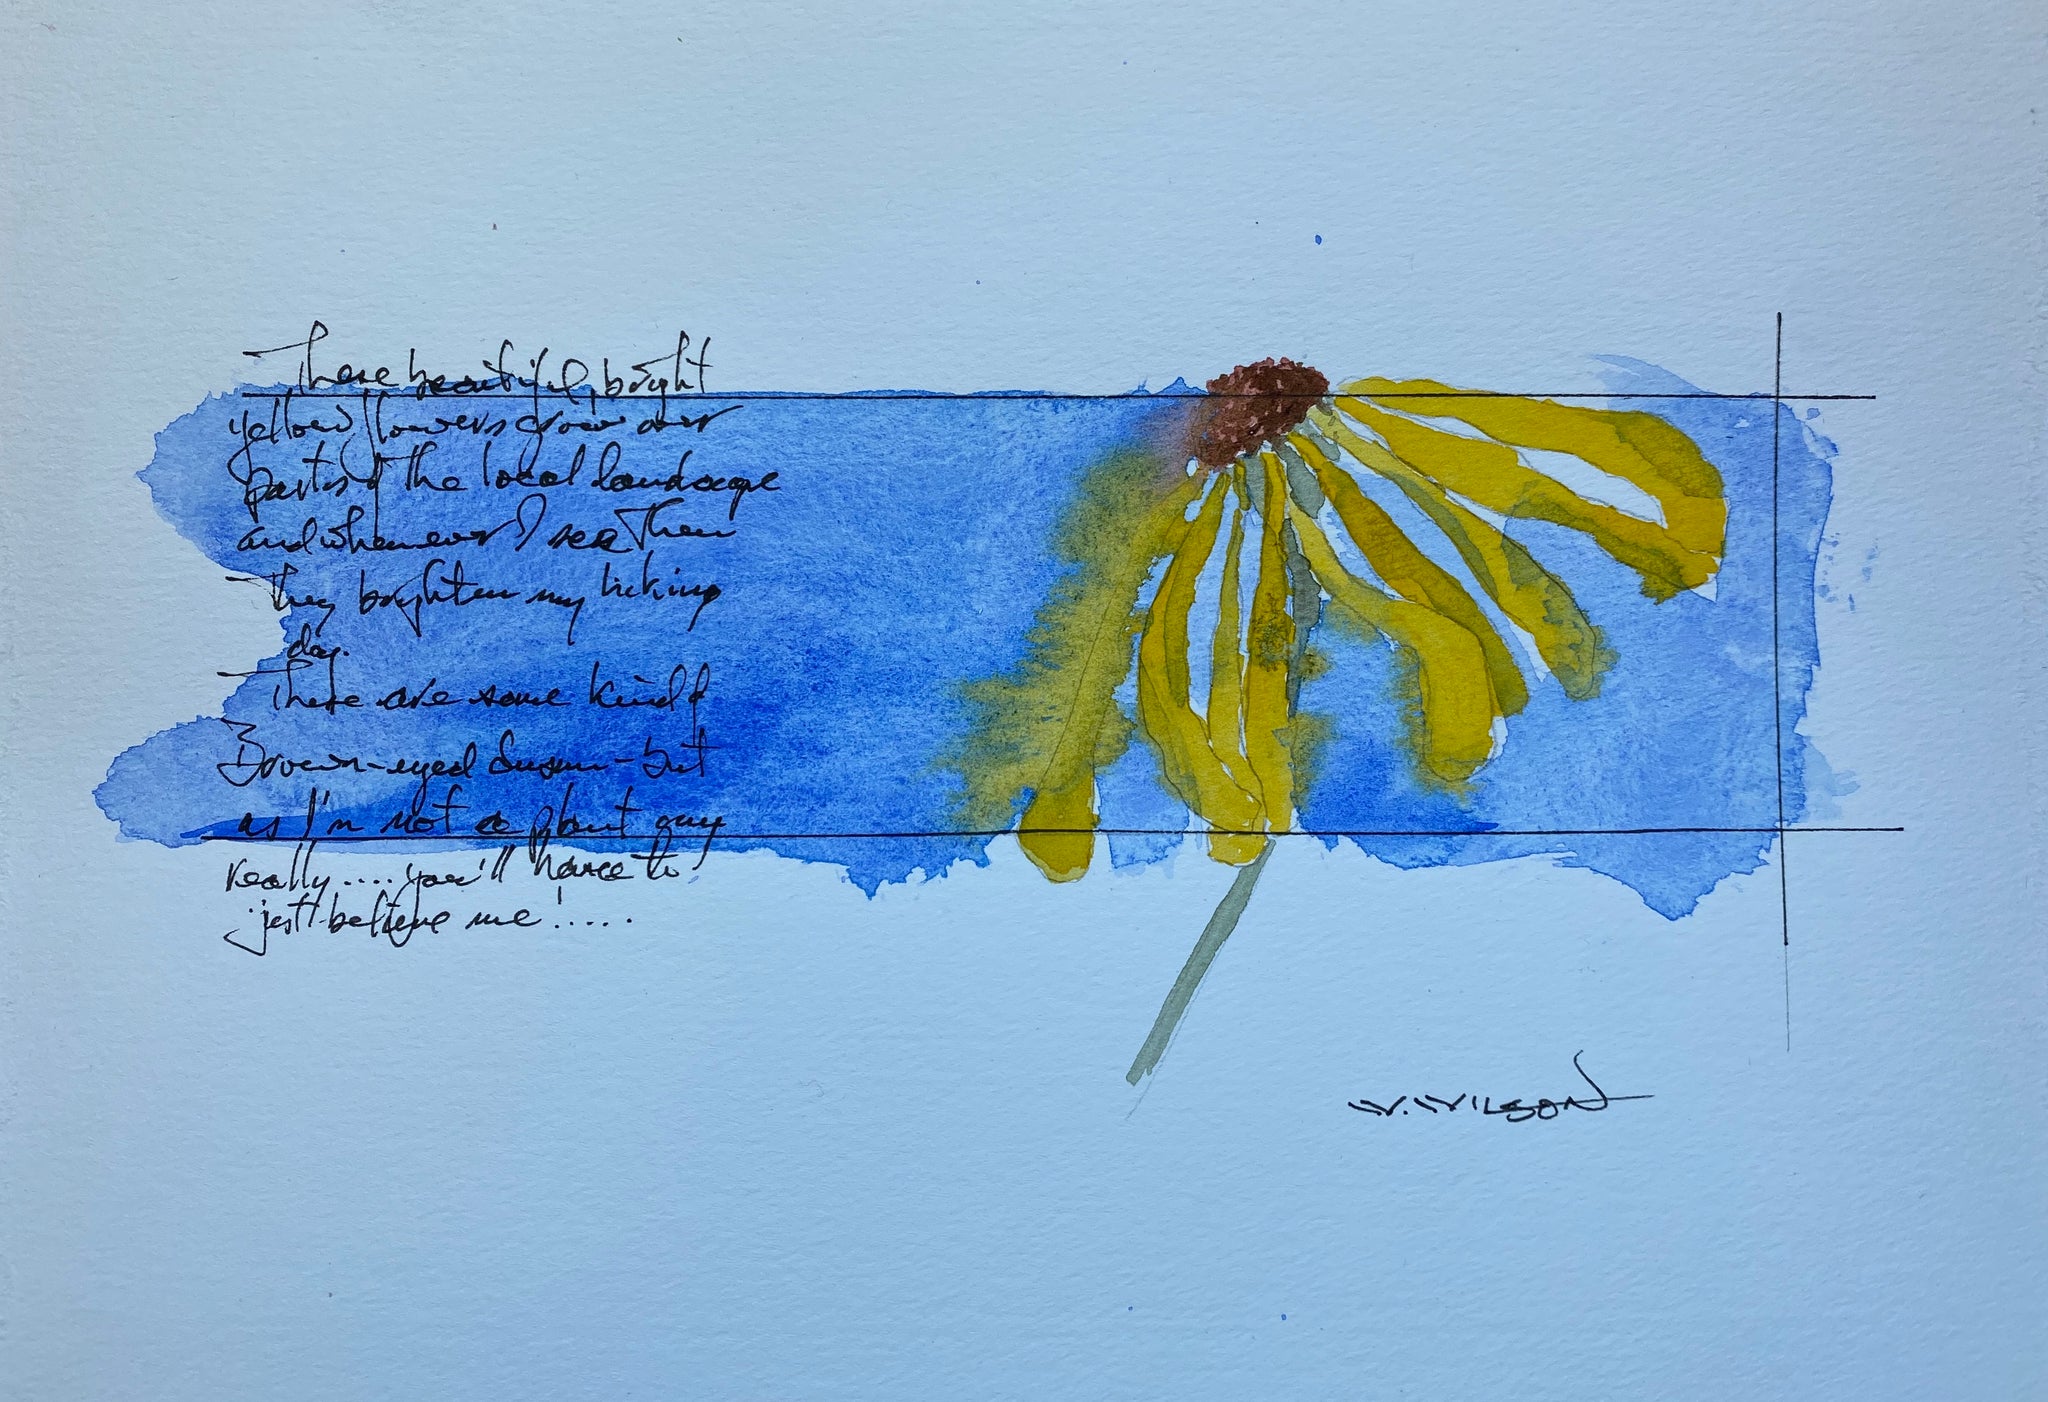 These beautiful, bright
yellow flowers grow over
parts of the local landscape
and whenever I see them
they brighten my hiking
day.
These are some kind of
Brown-eyed Susan - but
as I'm not a plant guy
really .... you'll have to
just believe me! ....
W. WILSON